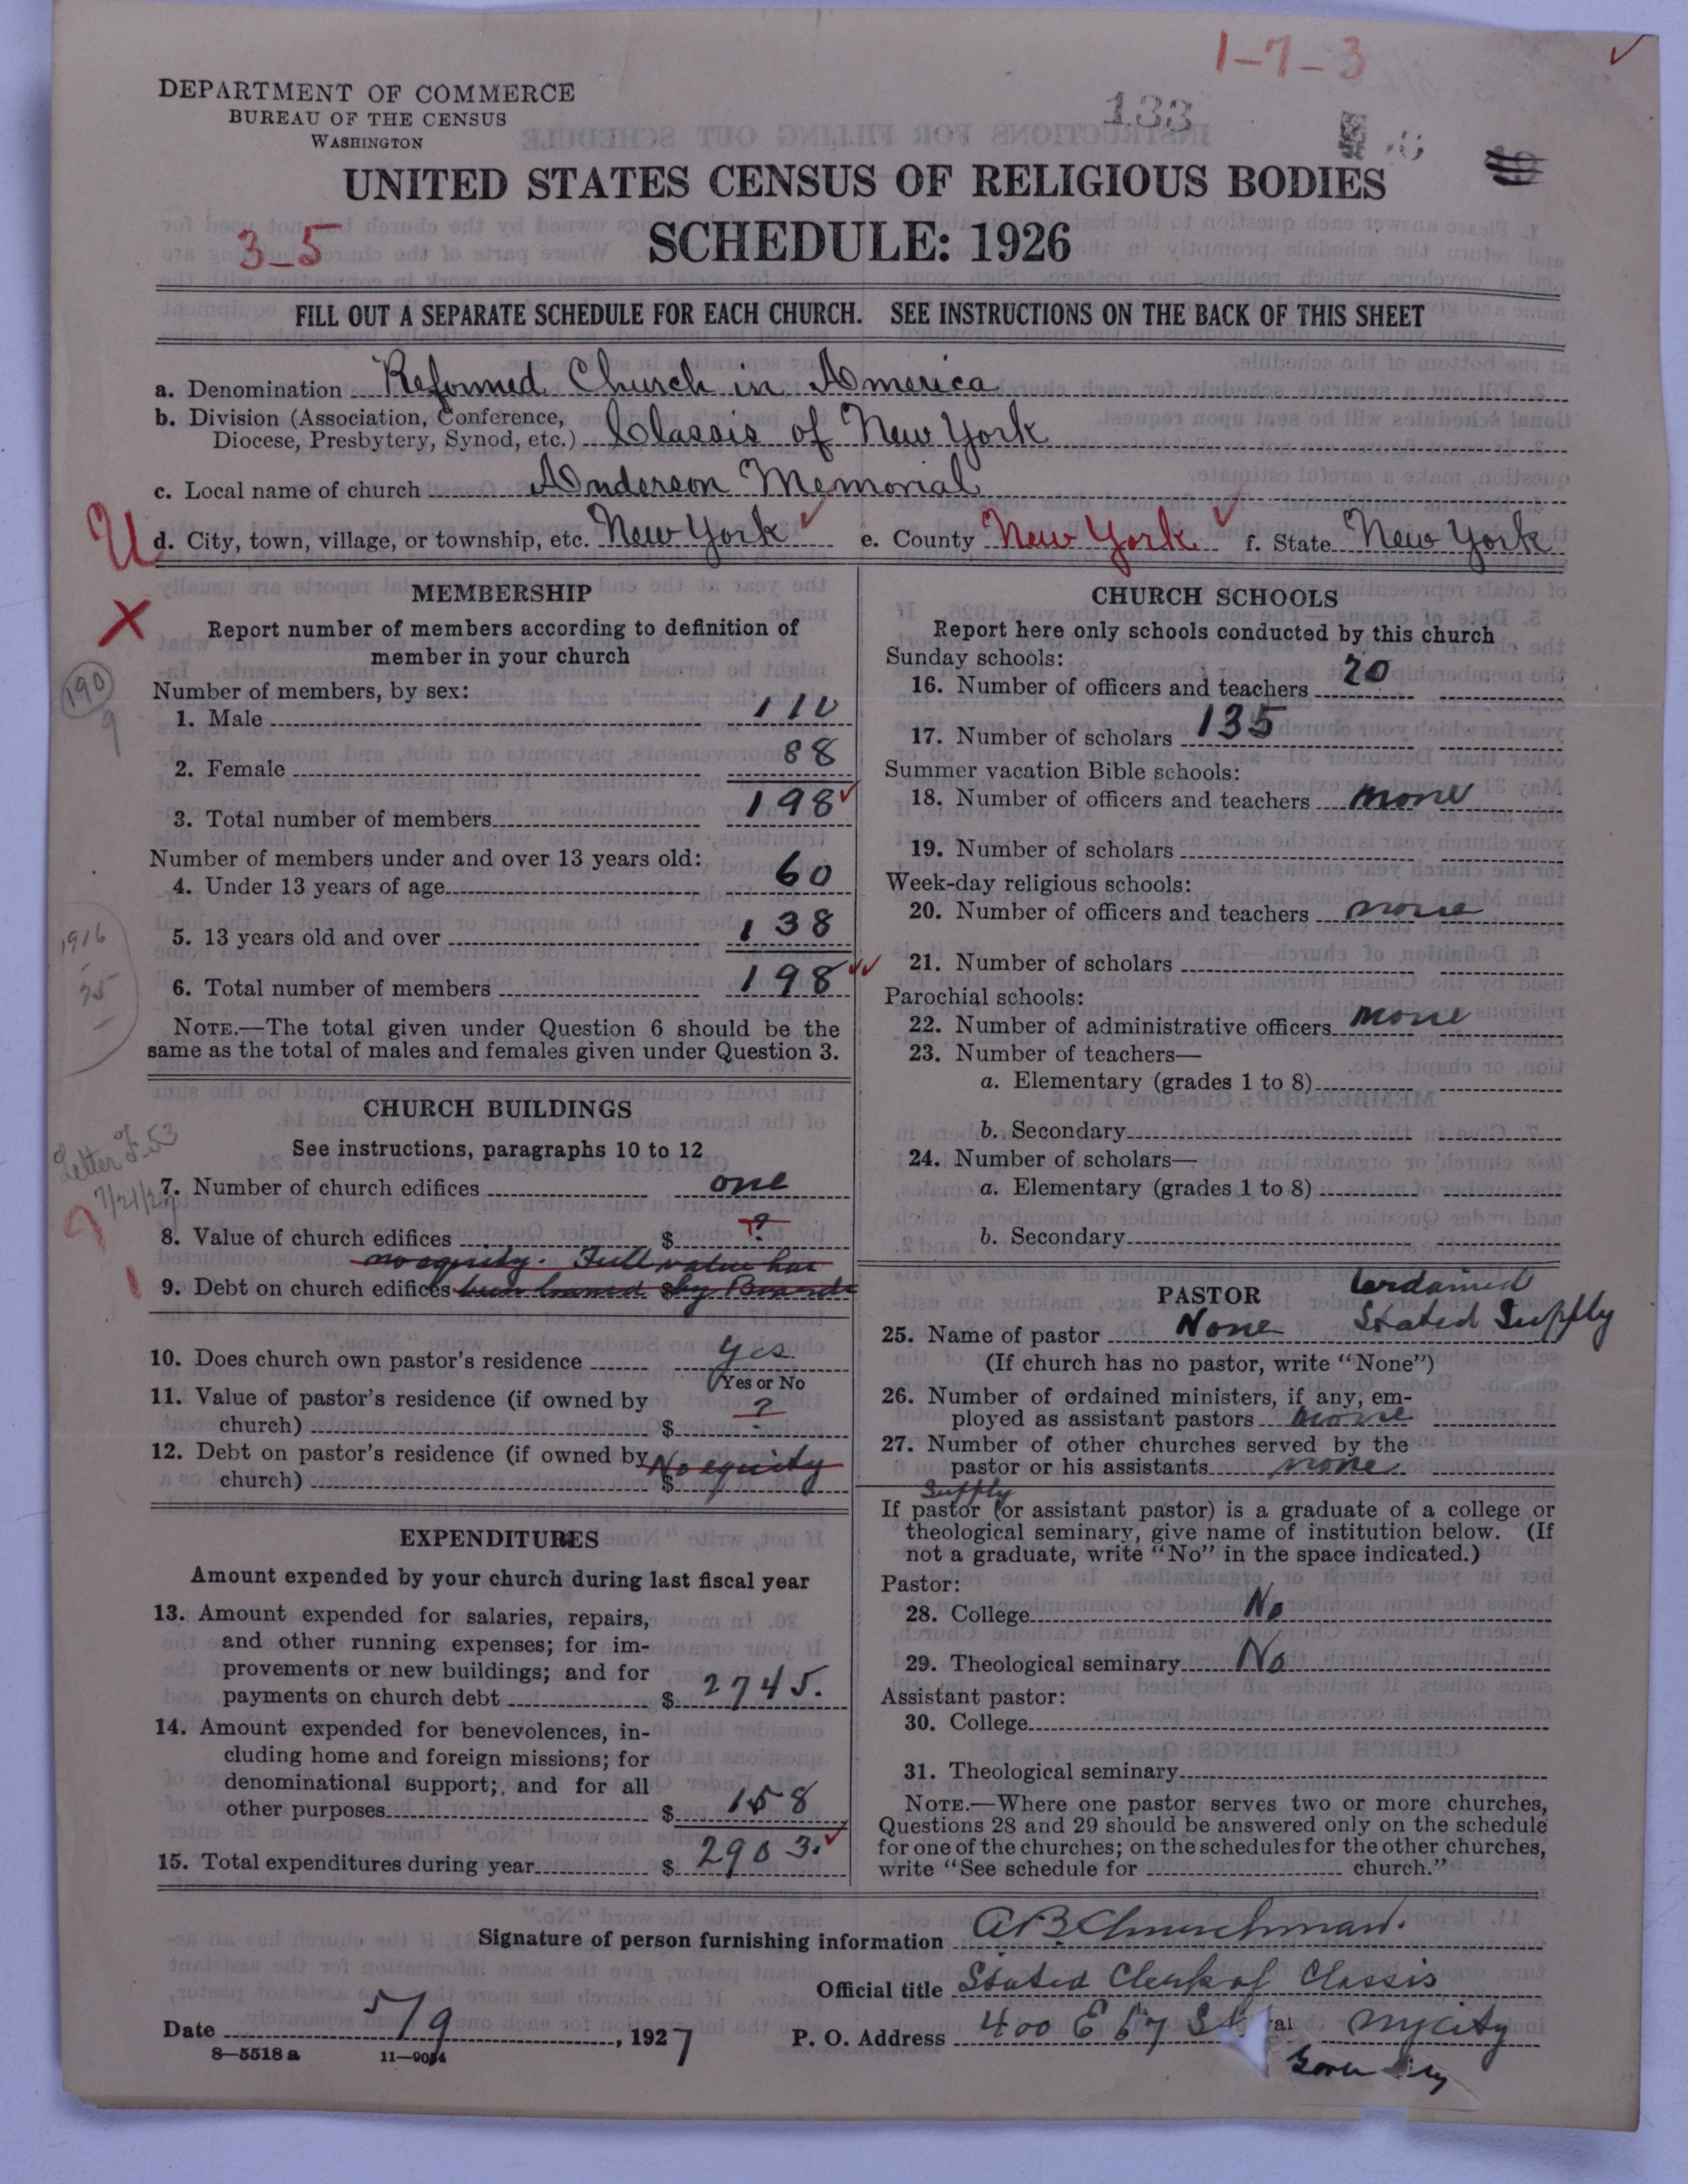 1-7-3
DEPARTMENT OF COMMERCE
BUREAU OF THE CENSUS
WASHINGTON
133
UNITED STATES CENSUS OF RELIGIOUS BODIES
3-5
SCHEDULE: 1926
FILL OUT A SEPARATE SCHEDULE FOR EACH CHURCH. SEE INSTRUCTIONS ON THE BACK OF THIS SHEET
a. Denomination Reformed Church in America
b. Division (Association, Conference,
Diocese, Presbytery, Synod, etc.) Classis of New York
c. Local name of church Anderson Memorial
U d. City, town, village, or township, etc. New York e. County New York f. State New York
MEMBERSHIP
X Report number of members according to definition of
member in your church
190
9
Number of members, by sex:
1. Male 110
2. Female 88
3. Total number of members 198
Number of members under and over 13 years old:
4. Under 13 years of age 60
5. 13 years old and over 138
1916
6. Total number of members 198
NOTE.—The total given under Question 6 should be the
same as the total of males and females given under Question 3.
CHURCH BUILDINGS
See instructions, paragraphs 10 to 12
Letter F-53
7/21/27
7. Number of church edifices one
8. Value of church edifices $ ?
no equity. Full value has
9. Debt on church edifices been loaned $ by Boards
10. Does church own pastor's residence yes
Yes or No
11. Value of pastor's residence (if owned by
church) $ ?
12. Debt on pastor's residence (if owned by No equity
church) $
EXPENDITURES
Amount expended by your church during last fiscal year
13. Amount expended for salaries, repairs,
and other running expenses; for im-
provements or new buildings; and for
payments on church debt $ 2745.
14. Amount expended for benevolences, in-
cluding home and foreign missions; for
denominational support; and for all
other purposes $ 158
15. Total expenditures during year $ 2903.
CHURCH SCHOOLS
Report here only schools conducted by this church
Sunday schools:
16. Number of officers and teachers 20
17. Number of scholars 135
Summer vacation Bible schools:
18. Number of officers and teachers none
19. Number of scholars
Week-day religious schools:
20. Number of officers and teachers none
21. Number of scholars
Parochial schools:
22. Number of administrative officers none
23. Number of teachers—
a. Elementary (grades 1 to 8)
b. Secondary
24. Number of scholars—
a. Elementary (grades 1 to 8)
b. Secondary
PASTOR Ordained
25. Name of pastor None Stated Supply
(If church has no pastor, write "None")
26. Number of ordained ministers, if any, em-
ployed as assistant pastors none
27. Number of other churches served by the
pastor or his assistants none
Supply
If pastor (or assistant pastor) is a graduate of a college or
theological seminary, give name of institution below. (If
not a graduate, write "No" in the space indicated.)
Pastor:
28. College No
29. Theological seminary No
Assistant pastor:
30. College
31. Theological seminary
NOTE.—Where one pastor serves two or more churches,
Questions 28 and 29 should be answered only on the schedule
for one of the churches; on the schedules for the other churches,
write "See schedule for church."
Signature of person furnishing information A B Churchman.
Official title Stated Clerk of Classis
Date 5/9, 1927 P. O. Address 400 E 67 St N Y City
8—5518 a 11—9054